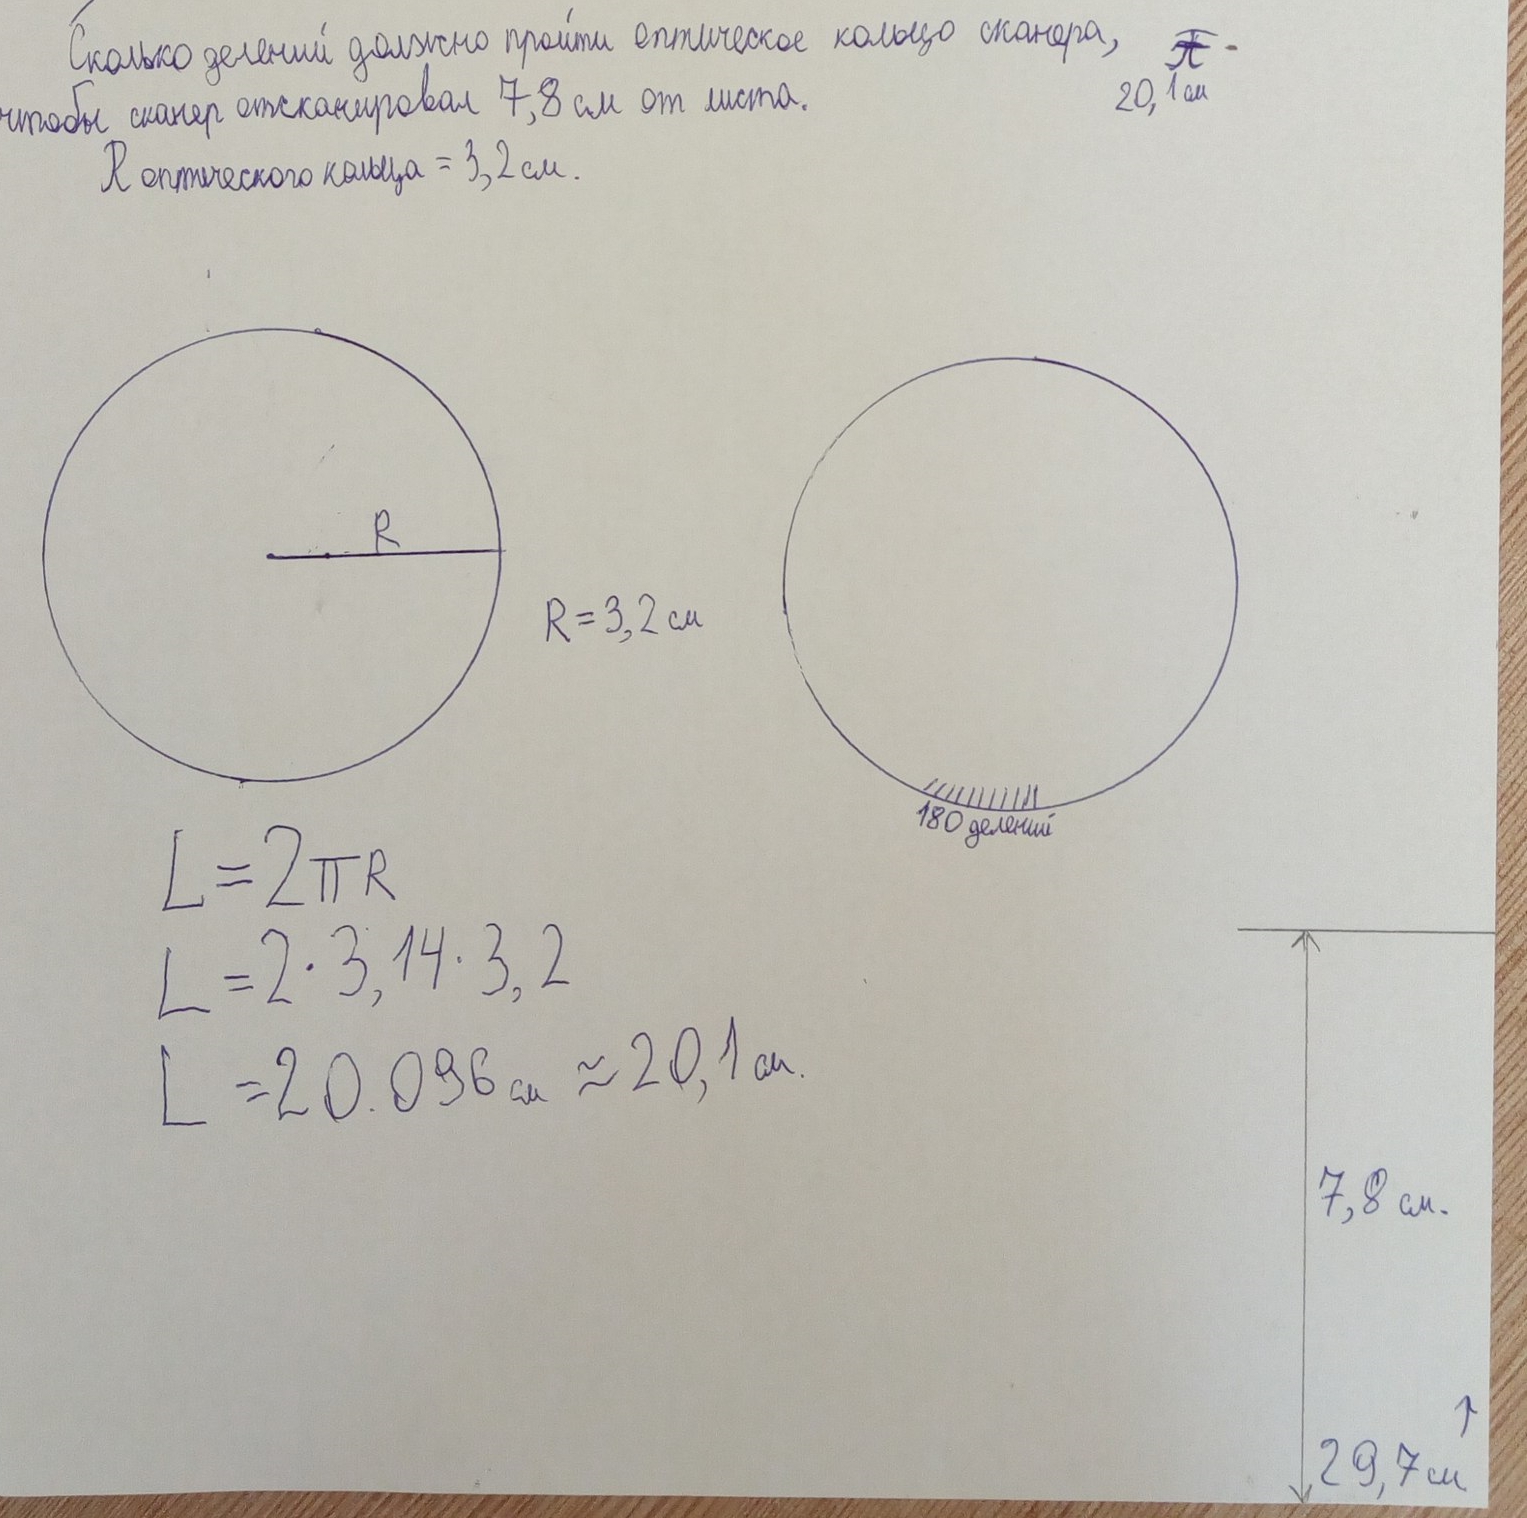 Сколько делений должно пройти оптическое кольцо сканера,
чтобы сканер отсканировал 7,8 см от листа.
20,1 см
R оптического кольца = 3,2 см.
R
R = 3,2 см
180 делений
L = 2πR
L = 2 · 3,14 · 3,2
L = 20.096 см ≈ 20,1 см.
7,8 см.
29,7 см